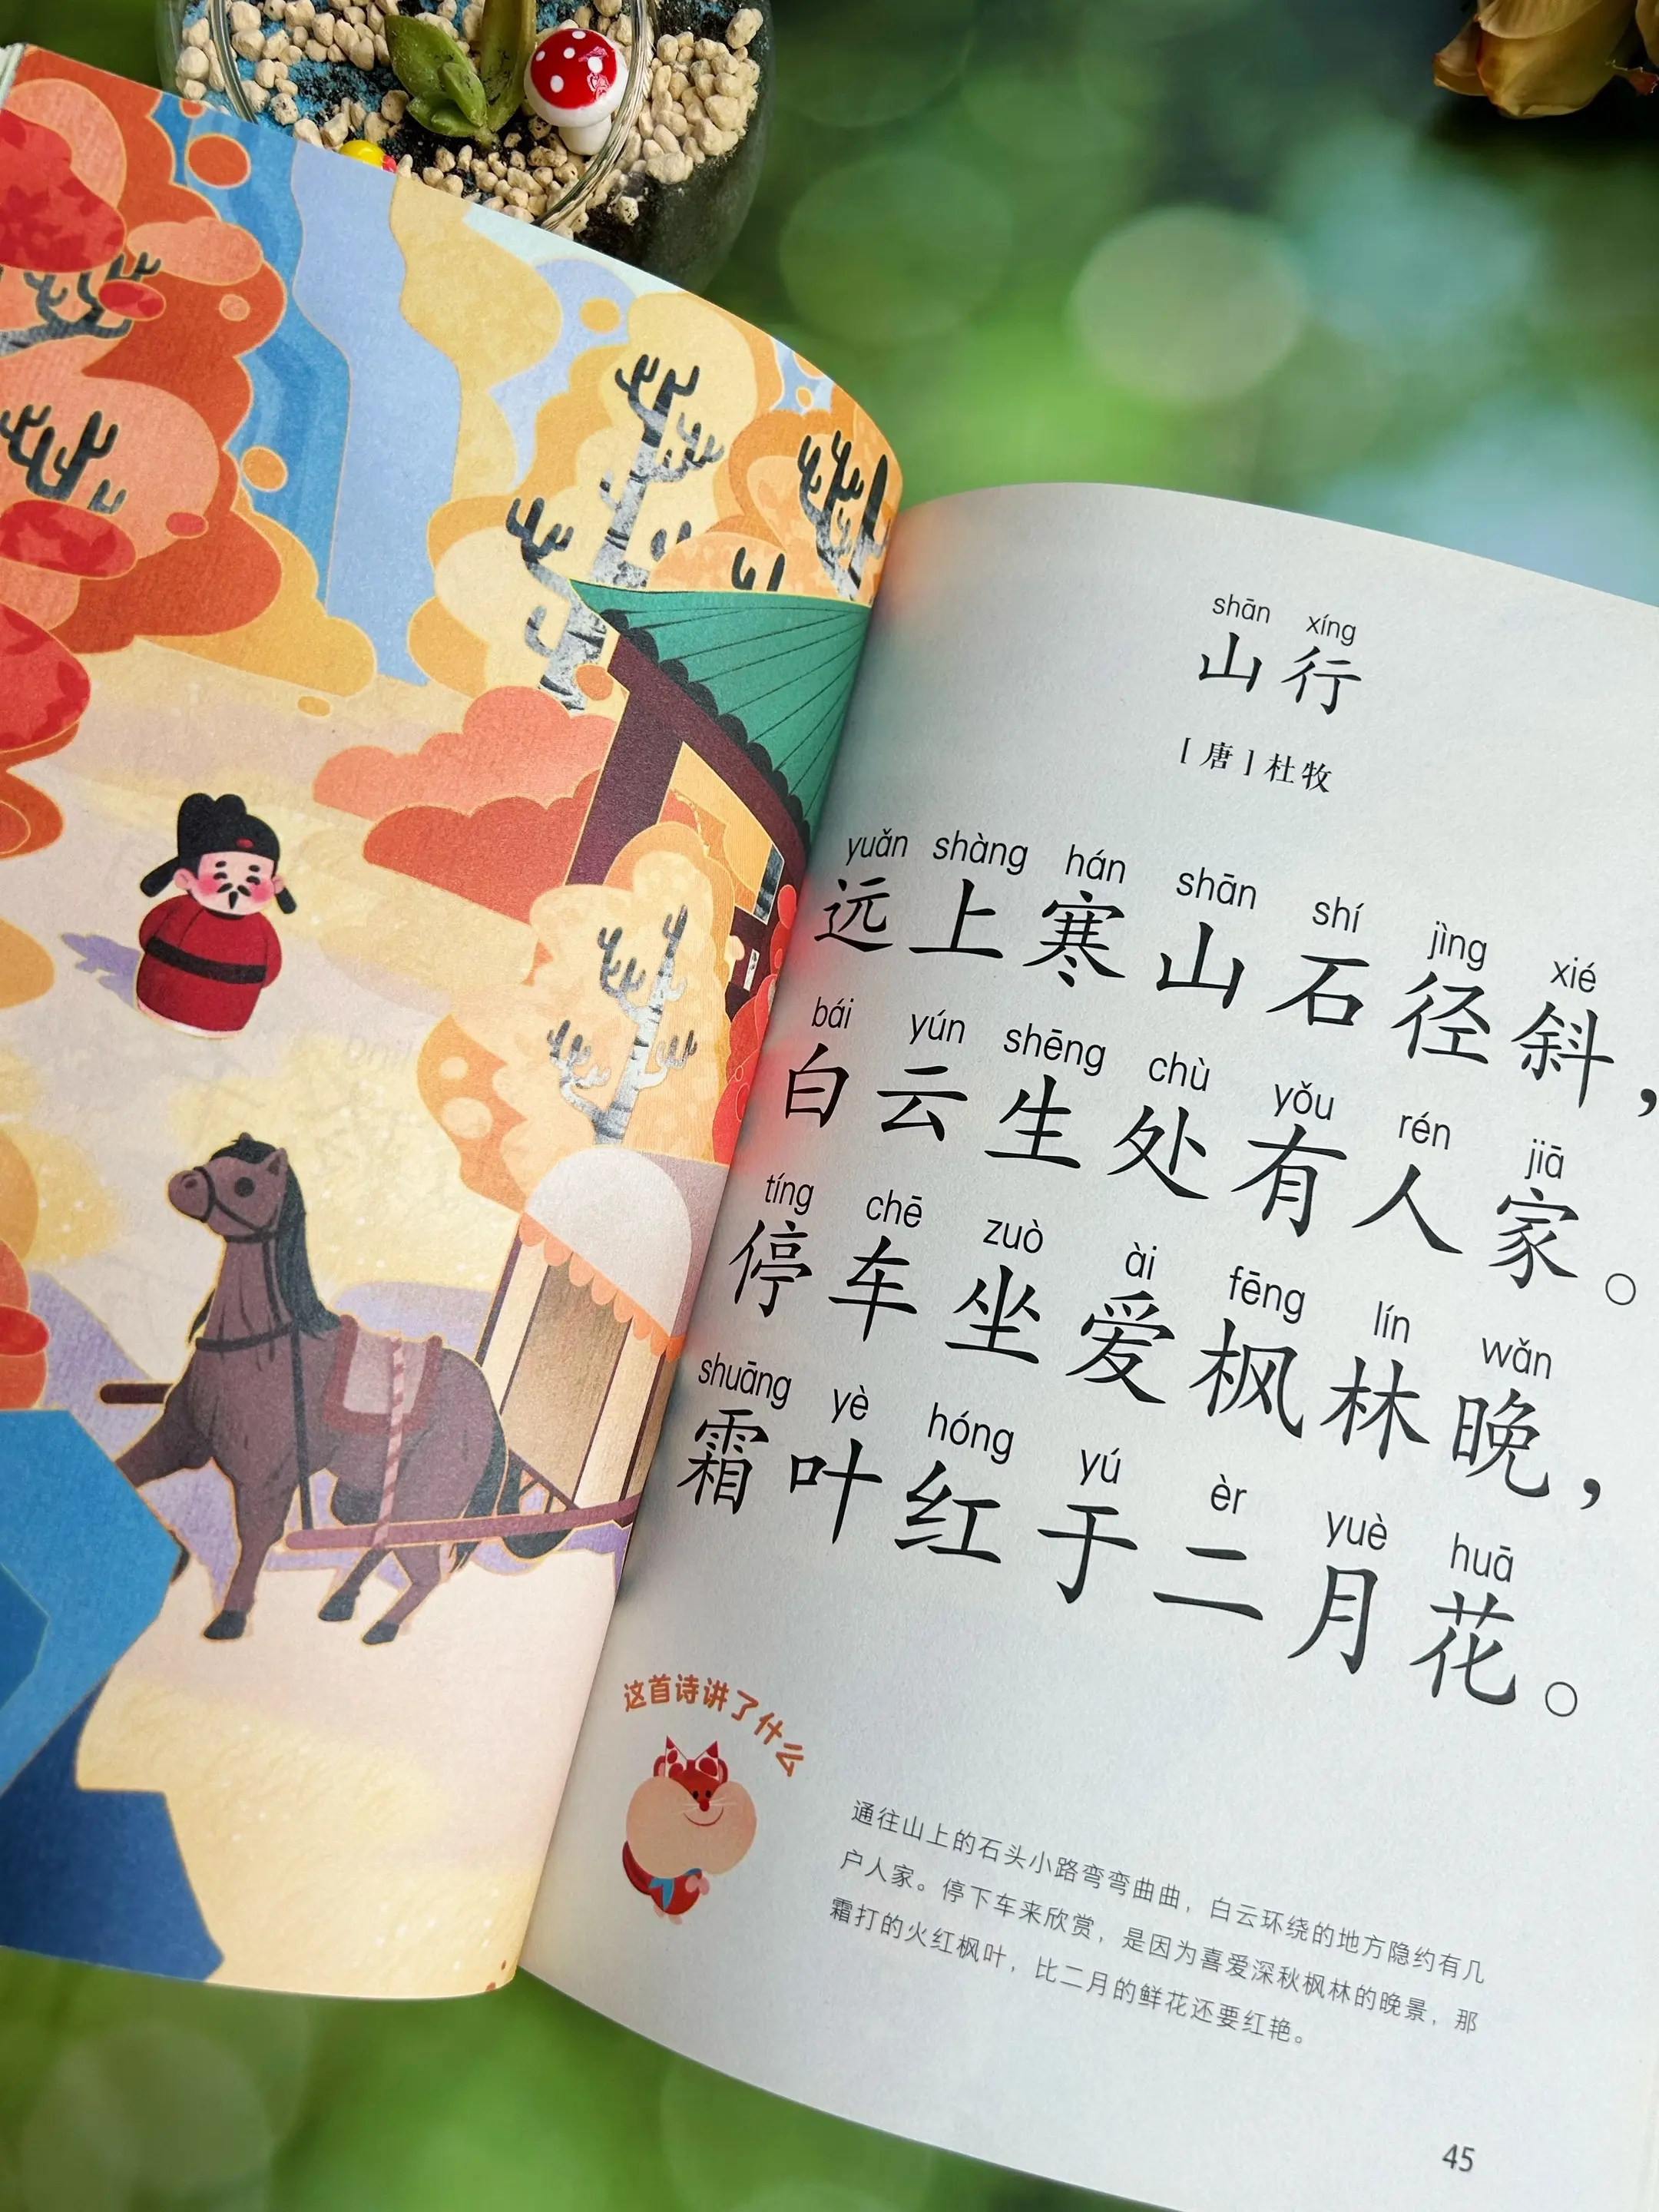 shān xíng
山行
［唐］杜牧
yuǎn shàng hán shān shí jìng xié
远上寒山石径斜，
bái yún shēng chù yǒu rén jiā
白云生处有人家。
tíng chē zuò ài fēng lín wǎn
停车坐爱枫林晚，
shuāng yè hóng yú èr yuè huā
霜叶红于二月花。
这首诗讲了什么
通往山上的石头小路弯弯曲曲，白云环绕的地方隐约有几
户人家。停下车来欣赏，是因为喜爱深秋枫林的晚景，那
霜打的火红枫叶，比二月的鲜花还要红艳。
45